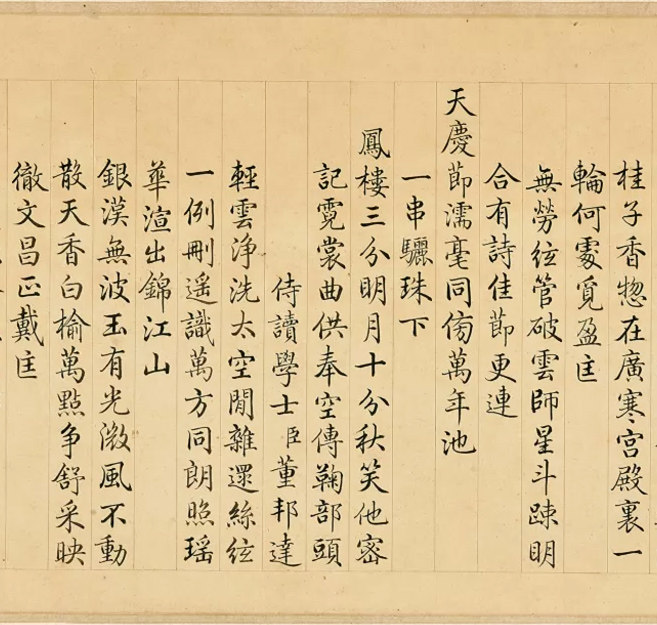 桂子香惣在廣寒宫殿裏一
輪何處覓盈匡
無勞絃管破雲師星斗踈明
合有詩佳節更連
天慶節濡毫同傍萬年池
一串驪珠下
鳳樓三分明月十分秋笑他宻
記霓裳曲供奉空傳鞠部頭
侍讀學士臣董邦達
輕雲浄洗太空閒雜遝絲絃
一例刪遥識萬方同朗照瑶
華渲出錦江山
銀漢無波玉有光微風不動
散天香白榆萬點争舒采映
徹文昌正戴匡